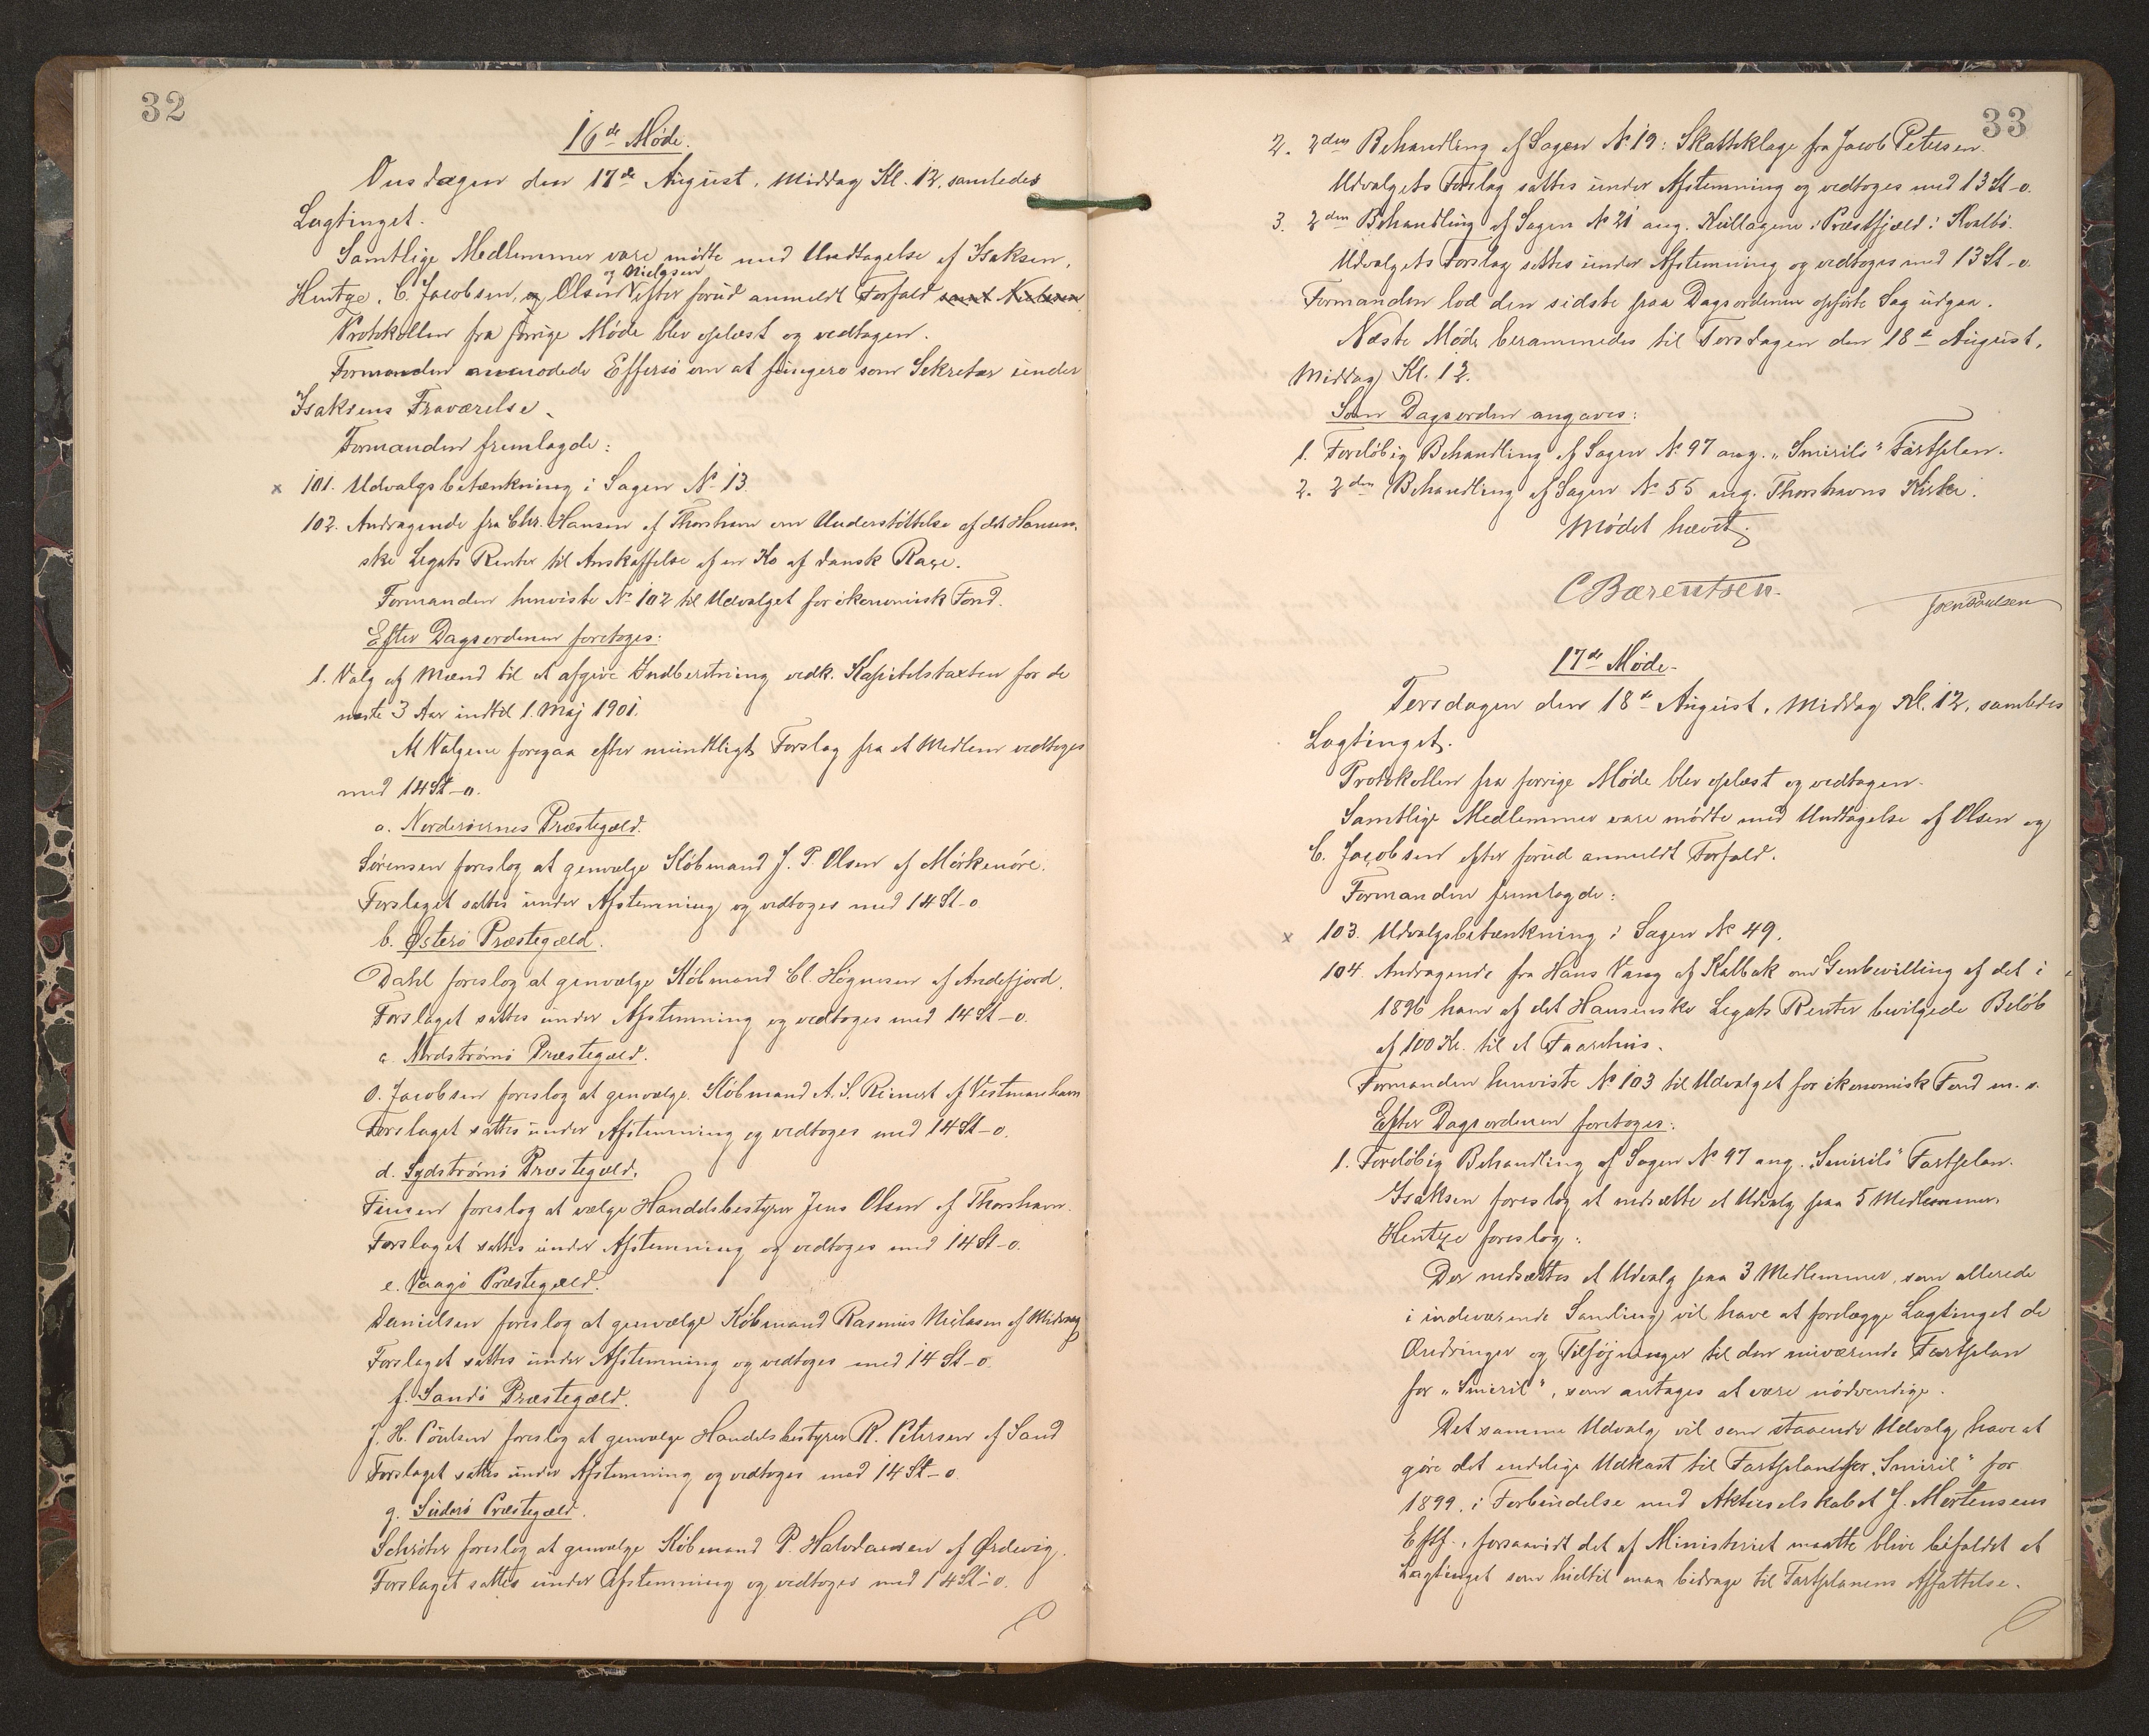 32
16de Møde.
Onsdagen den 17de August, Middag Kl. 12, samledes
Lagtinget.
Samtlige Medlemmer vare mødte med Undtagelse af Isaksen,
og Nielsen
Hentze, C. Jacobsen, og Olsen efter forud anmeldt Forfald samt Nielsen
Protokollen fra forrige Møde blev oplæst og vedtagen.
Formanden anmodede Effersø om at fungere som Sekretær under
Isaksens Fraværelse.
Formanden fremlagde:
x 101. Udvalgsbetænkning i Sagen No 13.
102. Andragende fra Chr. Hansen af Thorshavn om Understøttelse af det Hansen-
ske Legats Renter til Anskaffelse af en Ko af dansk Race.
Formanden henviste No 102 til Udvalget for økonomisk Fond.
Efter Dagsordenen foretoges:
1. Valg af Mænd til at afgive Indberetning vedk. Kapitelstaxten for de
næste 3 Aar indtil 1. Maj 1901.
At Valgene foregaa efter mundtligt Forslag fra et Medlem vedtoges
med 14 St-0.
a. Norderøernes Præstegæld.
Sørensen foreslog at genvælge Købmand J. P. Olsen af Mørkenøre.
Forslaget sattes under Afstemning og vedtoges med 14 St-0
b. Østerø Præstegæld.
Dahl foreslog at genvælge Købmand Cl. Høgnesen af Andefjord.
Forslaget sattes under Afstemning og vedtoges med 14 St-0.
c. Nordstrømø Præstegæld.
O. Jacobsen foreslog at genvælge Købmand A. S. Reinert af Vestmanhavn
Forslaget sattes under Afstemning og vedtoges med 14 St-0.
d. Sydstrømø Præstegæld.
Finsen foreslog at vælge Handelsbestyrer Jens Olsen af Thorshavn.
Forslaget sattes under Afstemning og vedtoges med 14 St-0.
e. Vaagø Præstegæld.
Danielsen foreslog at genvælge Købmand Rasmus Nielasen af Midvaag
Forslaget sattes under Afstemning og vedtoges med 14 St-0.
f. Sandø Præstegæld.
J. H. Poulsen foreslog at genvælge Handelsbestyrer R. Petersen af Sand
Forslaget sattes under Afstemning og vedtoges med 14 St-0.
g. Suderø Præstegæld.
Schrøter foreslog at genvælge Købmand P. Halvdansen af Ørdevig.
Forslaget sattes under Afstemning og vedtoges med 14 St-0.
33
2. 2den Behandling af Sagen No 19: Skatteklage fra Jacob Petersen.
Udvalgets Forslag sattes under Afstemning og vedtoges med 13 St-0.
3. 2den Behandling af Sagen No 21 ang. Kullagene i Præstfjæld i Kvalbø.
Udvalgets Forslag sattes under Afstemning og vedtoges med 13 St-0
Formanden lod den sidste paa Dagsordenen opførte Sag udgaa.
Næste Møde berammedes til Torsdagen den 18de August,
Middag Kl. 12.
Som Dagsorden angaves:
1. Foreløbig Behandling af Sagen No 97 ang. „Smirils“ Fartplan.
2. 2den Behandling af Sagen No 55 ang. Thorshavns Kirke.
Mødet hævet.
C Bærentsen.
Joen Poulsen
17de Møde.
Torsdagen den 18de August, Middag Kl. 12, samledes
Lagtinget.
Protokollen fra forrige Møde blev oplæst og vedtagen.
Samtlige Medlemmer vare mødte med Undtagelse af Olsen og
C. Jacobsen efter forud anmeldt Forfald.
Formanden fremlagde:
x 103. Udvalgsbetænkning i Sagen No 49.
104. Andragende fra Hans Vang af Kalbak om Genbevilling af det i
1896 ham af det Hansenske Legats Renter bevilgede Beløb
af 100 Kr. til et Faarehus.
Formanden henviste No 103 til Udvalget for økonomisk Fond m. v.
Efter Dagsordenen foretoges:
1. Foreløbig Behandling af Sagen No 97 ang. „Smirils“ Fartplan.
Isaksen foreslog at nedsætte et Udvalg paa 5 Medlemmer.
Hentze foreslog:
Der nedsættes et Udvalg paa 3 Medlemmer, som allerede
i indeværende Samling vil have at forelægge Lagtinget de
Ændringer og Tilføjninger til den nuværende Fartplan
for „Smiril“, som antages at være nødvendige.
Det samme Udvalg vil som staaende Udvalg have at
gøre det endelige Udkast til Fartplan for „Smiril“ for
1899, i Forbindelse med Aktieselskabet J. Mortensens
Eftf., forsaavidt det af Ministeriet maatte blive bifaldet at
Lagtinget som hidtil maa bidrage til Fartplanens Affattelse.